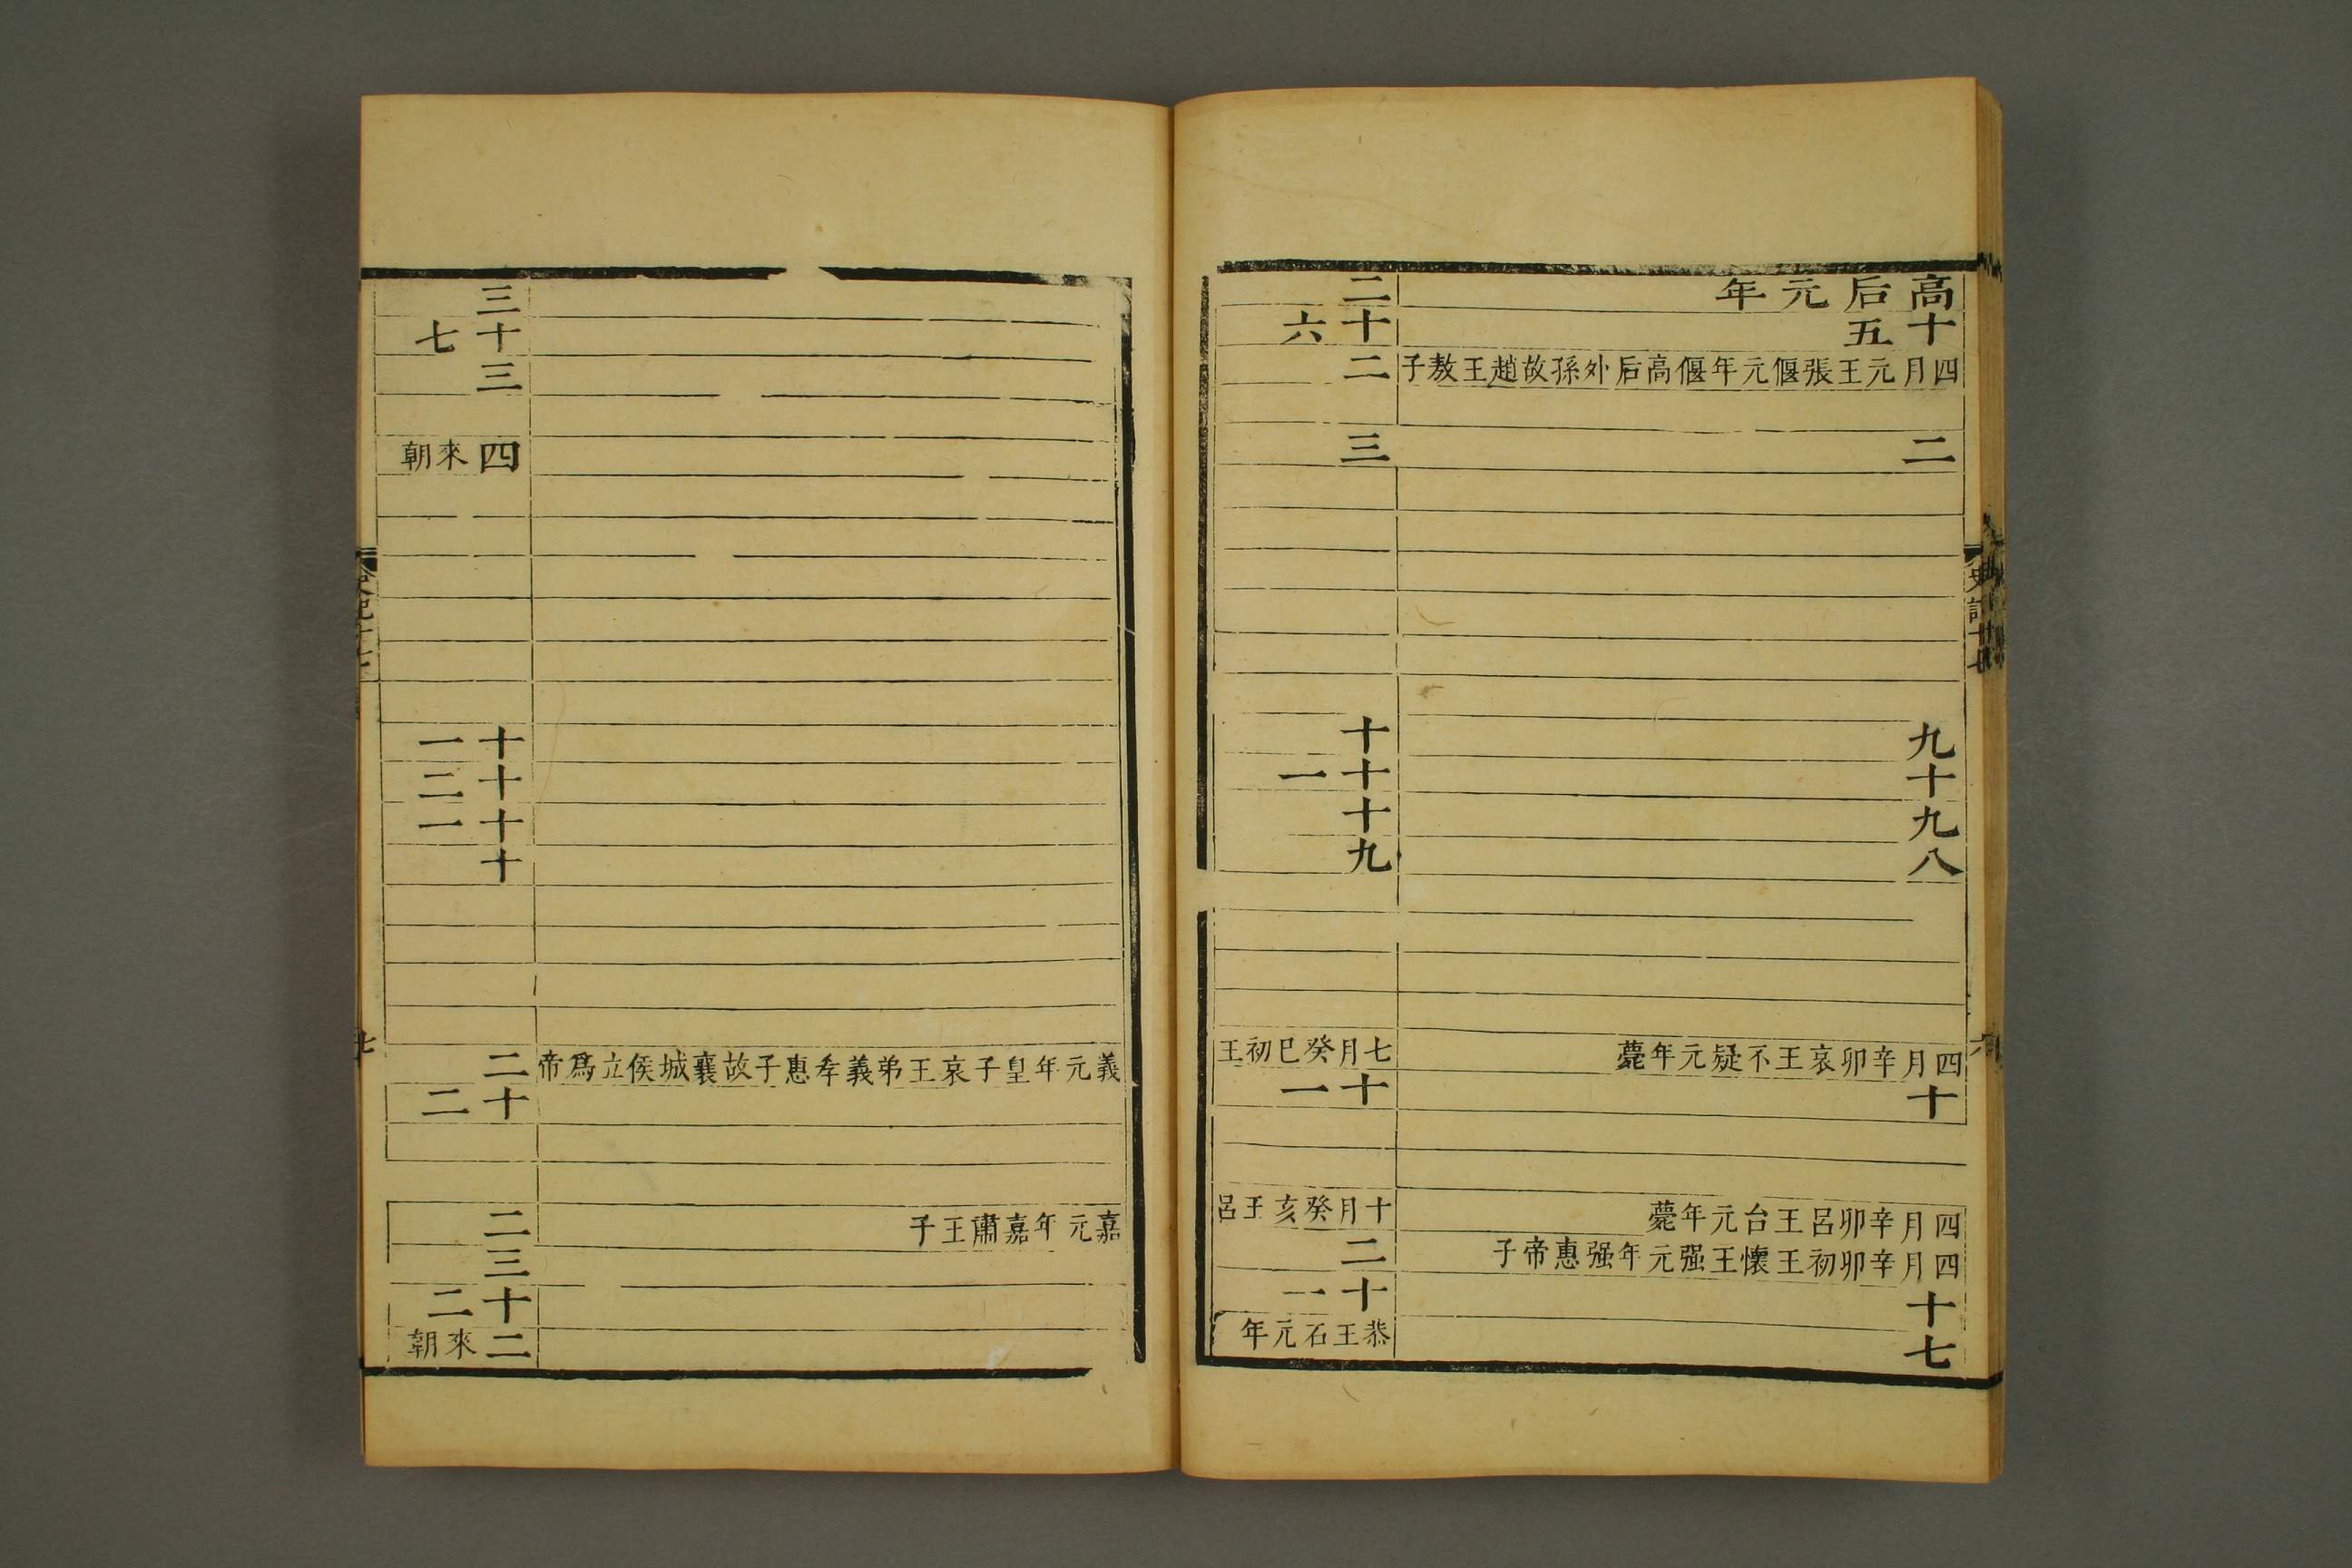 高后元年
十五
四月元王張偃元年偃高后外孫故趙王敖子
二
九
十
九
八
四月辛卯哀王不疑元年薨
十
四月辛卯呂王台元年薨
四月辛卯初王懷王强元年强惠帝子
十
七
二
十六
二
三
十
十一
十
九
七月癸巳初王
十一
十月癸亥王呂
二
十一
恭王石元年
義元年皇子哀王弟義孝惠子故襄城侯立爲帝
嘉元年嘉肅王子
三
十七
三
四來朝
十一
十二
十一
十
二
十二
二
三
十二
二來朝
史記十七
七